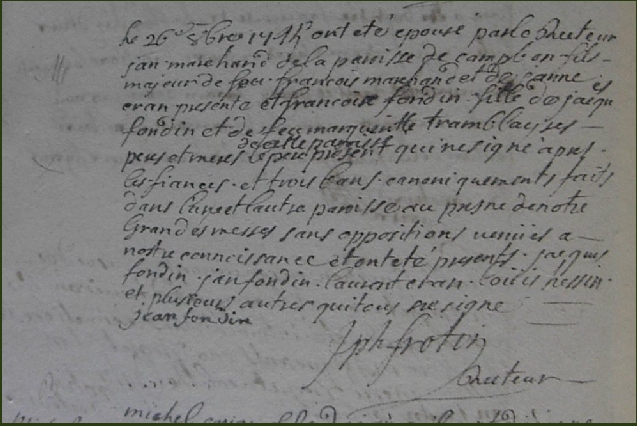 le 26e 8bre ont eté epousé par le Recteur
jan marchand de la paroisse de campbon fils
majeur de feu francois marchand et de janne
eran presente et francoise fondin fille de jacques
fondin et de feu margueritte tramblay ses
de cette paroisse
peres et meres le pere present qui ne signe apres
les fiances et trois bans canoniquements faits
dans l'une et l'autre paroisse au prosne de notre
Grandes messes sans oppositions venües a
nostre connoissance et ont eté presents jacques
fondin jan fondin laurent eran
et plusieurs autres qui tous ne signe
jean fondin
Jph frotin
Recteur
michel